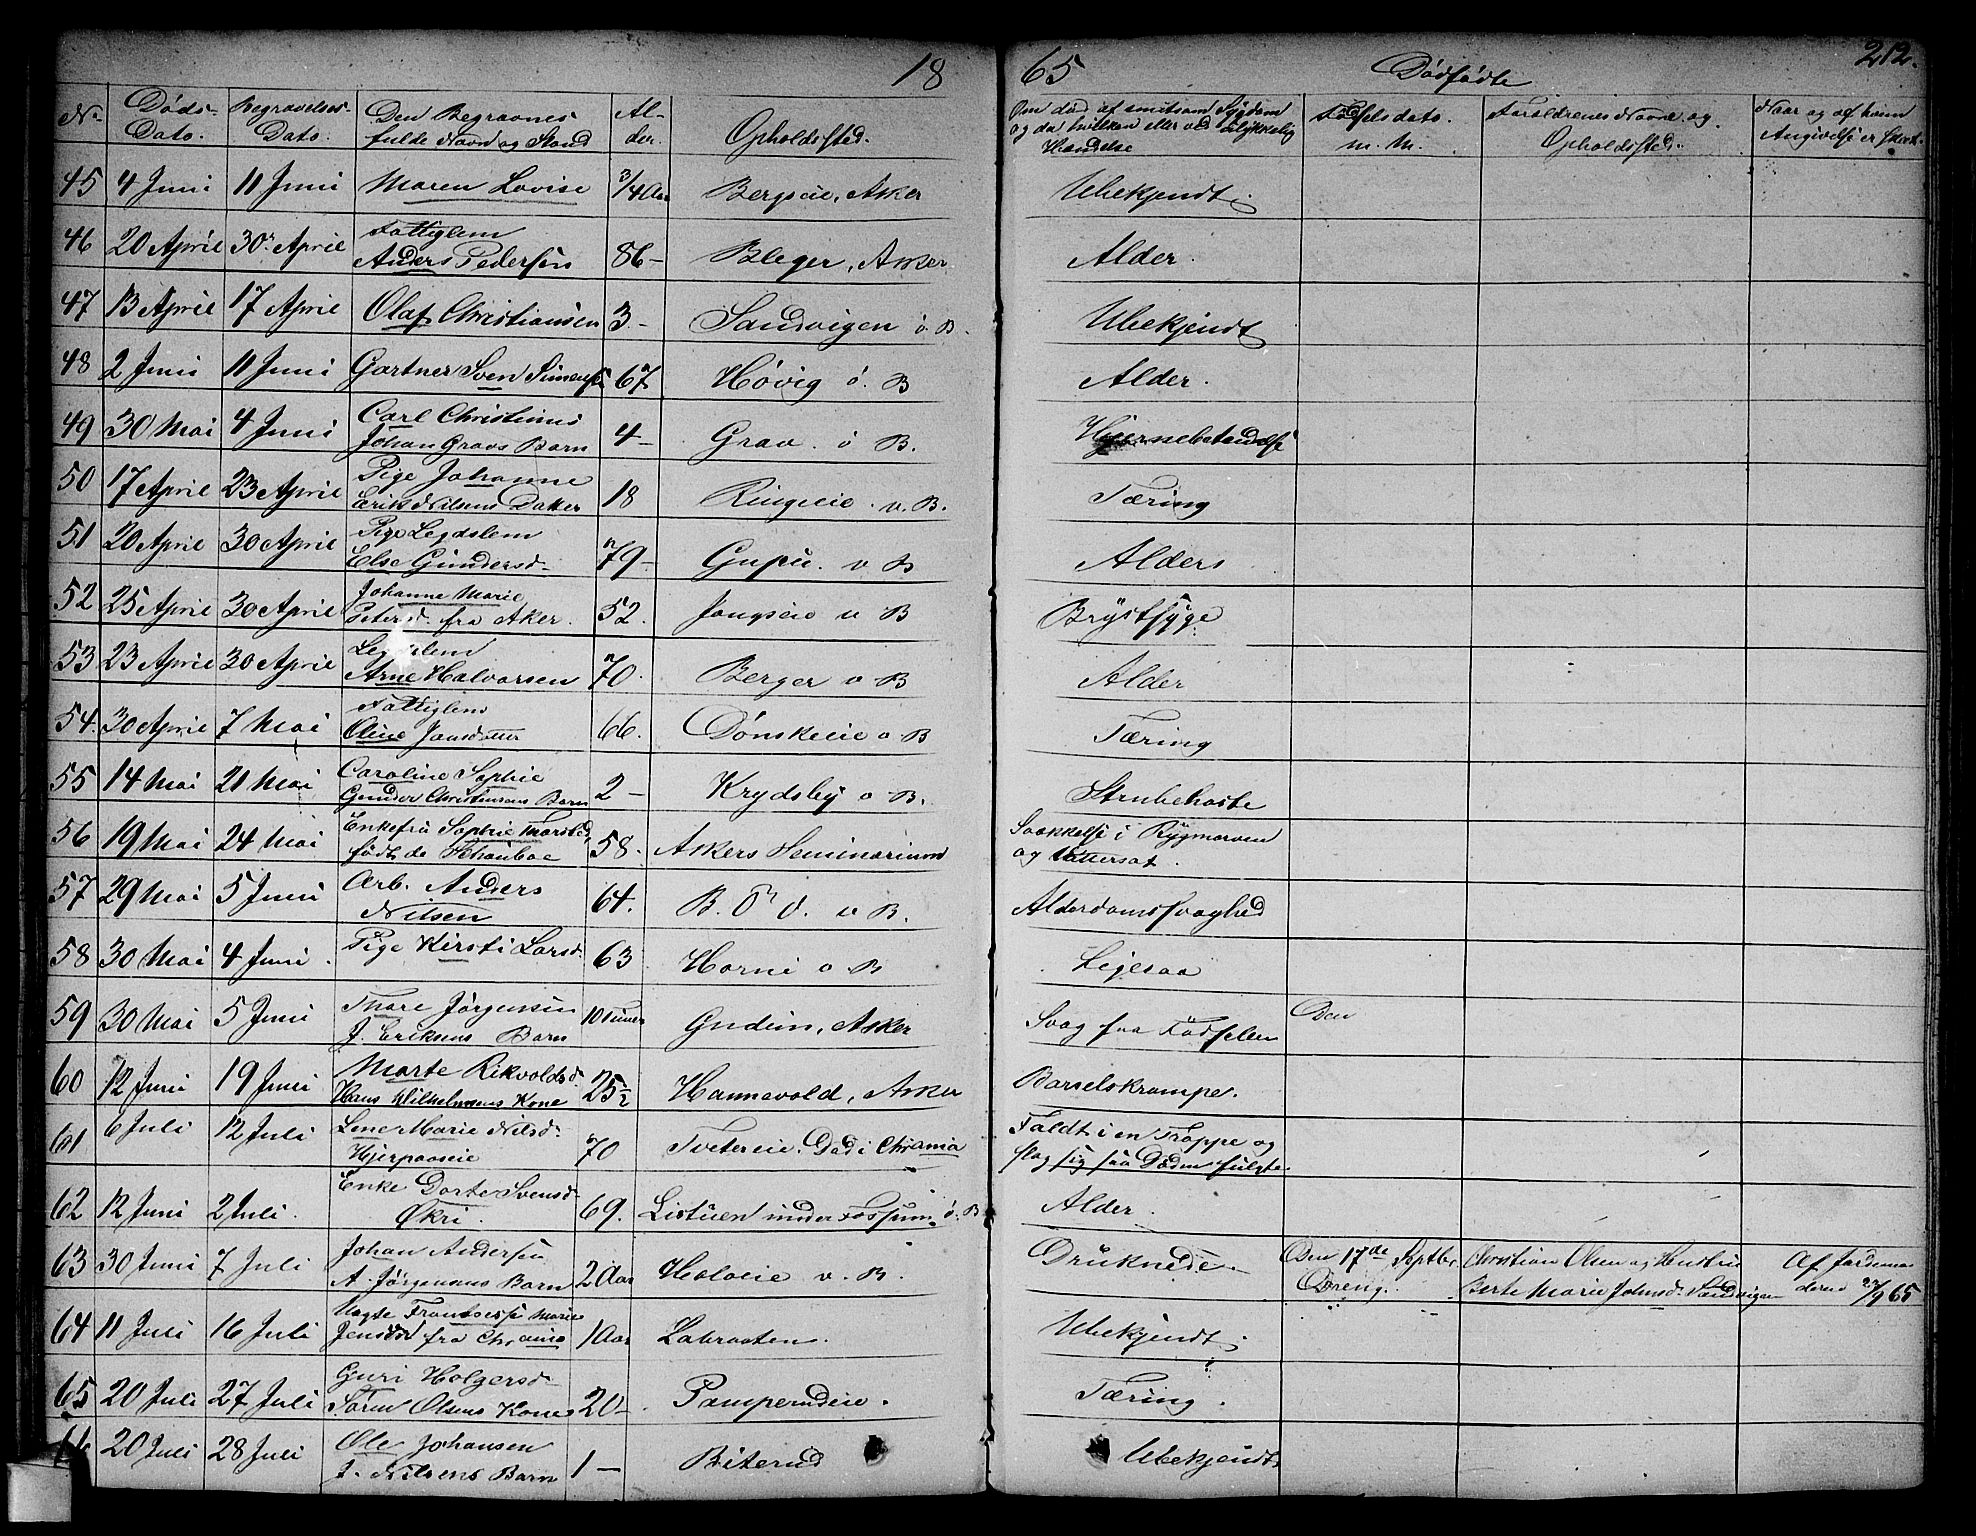 18 65 Dødfødte 212.
No Døds-Dato. Begravelses-Dato. Den Begravnes fulde Navn og Stand Al-der. Opholdssted. Om død af smitsom Sygdom og da hvilken eller ved Ulykkelig Hændelse Fødselsdato. m. M. Forældrenes Navne og Opholdssted. Naar og af hvem Angivelse er skeet.
45 4 Juni 11 Juni Maren Lovise 3/4 Aar Bergseie, Asker Ubekjendt.
46 20 April 30 April Fattiglem Anders Pedersen 86 - Bleger, Asker Alder.
47 13 April 17 April Olaf Christiansen 3 - Sandvigen ø. B. Ubekjendt
48 2 Juni 11 Juni Gartner Sven Simens 67 Høvig ø. B Alder.
49 30 Mai 4 Juni Carl Christinus Johan Gravs Barn 4 - Grav. ø B. Hjernebetændelse
50 17 April 23 April Pige Johanne Erik Nilsens Datter 18 Ringieie. v. B. Tæring
51 20 April 30 April Pige Legdslem Else Gundersd- 79 - Gupu. v B Alders
52 25 April 30 April Johanne Marie Petersd. fra Aker. 52. Jongseie v B Brystsyge
53 23 April 30 April Legdslem Arne Halvorsen 70. Berger v B Alder
54. 30 April 7 Mai Fattiglem Oline Jansdatter 66. Dønskeie ø B Tæring
55 14 Mai 21 Mai Caroline Sophie Gunder Christensens Barn 2 - Krydsby ø B. Strubehoste
56 19 Mai 24 Mai Enkefru Sophie født de 58. Askers Seminarium Svækkelse i Rygmarven og
57 29 Mai 5 Juni Arb. Anders Nilsen 64. v B. Alderdomssvaghed
58 30 Mai 4 Juni. Pige Kirsti Larsd. 63 Horni ø B Ligesaa
59 30 Mai 5 Juni Thore Jørgensen J. Eriksens Barn 10 Timer Gudem, Asker Svag fra Fødselen Den
60 12 Juni 19 Juni Marte Rikvoldsd. Hans Wilhelmsens Kone 25½ Hannevold, Asker Barselskrampe.
61 6 Juli 12 Juli Lene Marie Nilsd- Hjerpaaseie 70 Tvetereie. Død i Chrania Faldt i en Trappe og slog sig saa Døden fulgte
62 12 Juni 2 Juli. Enke Dorte Svensd- Økri. 69. Listuen under Fossum, ø. B Alder.
63 30 Juni 7 Juli Johan Andersen A. Jørgensens Barn 2 Aar Holoeie v. B. Druknede. Den 17de Septbr. Dreng. Christian Olsen og Hustru Berte Marie Johnsd. Sandvigen Af Jordemoderen 22/9 65
64 11 Juli 16 Juli Frantsesse Marie Jensdtr fra Chrania 1 Aar Labraaten. Ubekjendt.
65 20 Juli 27 Juli Guri Holgersd- Søren Olsens Kone 20 - Pamperudeie. Tæring.
66 20 Juli 28 Juli Ole Johansen J. Nilsens Barn 1 - Biterud Ubekjendt